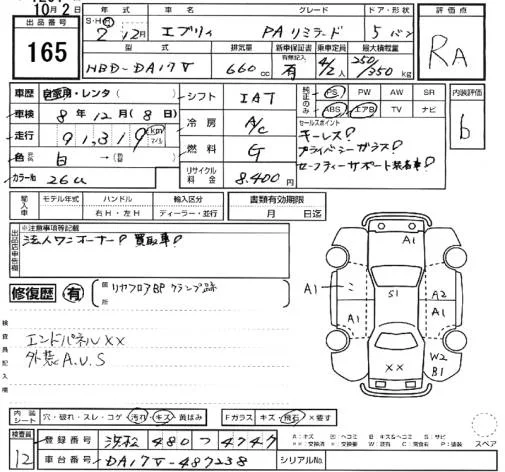 10月2日
出品番号
165
年式 車名 グレード ドア・形状
S・H・R 2年12月 エブリィ PAリミテッド 5 バン
型式 排気量 新車保証書 乗車定員 最大積載量
HBD-DA17V 660cc 有 4/2人 250/350kg
評価点
RA
車歴 自家用・レンタ( )
車検 8年12月(8日)
走行 91,319 km マイル
色 白→( )
カラー№ 26U
シフト IAT
冷房 A/C
燃料 G
リサイクル料金 8.400円
純正のみ PS PW AW SR
ABS エアB TV ナビ
セールスポイント
キーレス!
プライバシーガラス!
セーフティーサポート装着車!
内装評価
b
輸入車 モデル年式 ハンドル 輸入区分
右H・左H ディーラー・並行
書類有効期限
月 日迄
※注意事項等記載
法人ワンオーナー! 買取車!
修復歴 有 箇所 リヤフロアBPクランプ跡
検査員記入欄
エンドパネルXX
外装A.U.S
A1
A1
S1
A2
A1
A1
W2
B1
XX
内装シート 穴・破れ・スレ・コゲ 汚れ・キズ 黄ばみ Fガラス キズ・飛石 ×癒す
A:キズ U:ヘコミ B:キズ&ヘコミ S:サビ
スペア
検査員
12
登録番号 浜松 480 つ 4747
車台番号 DA17V-487238 シリアルNo.